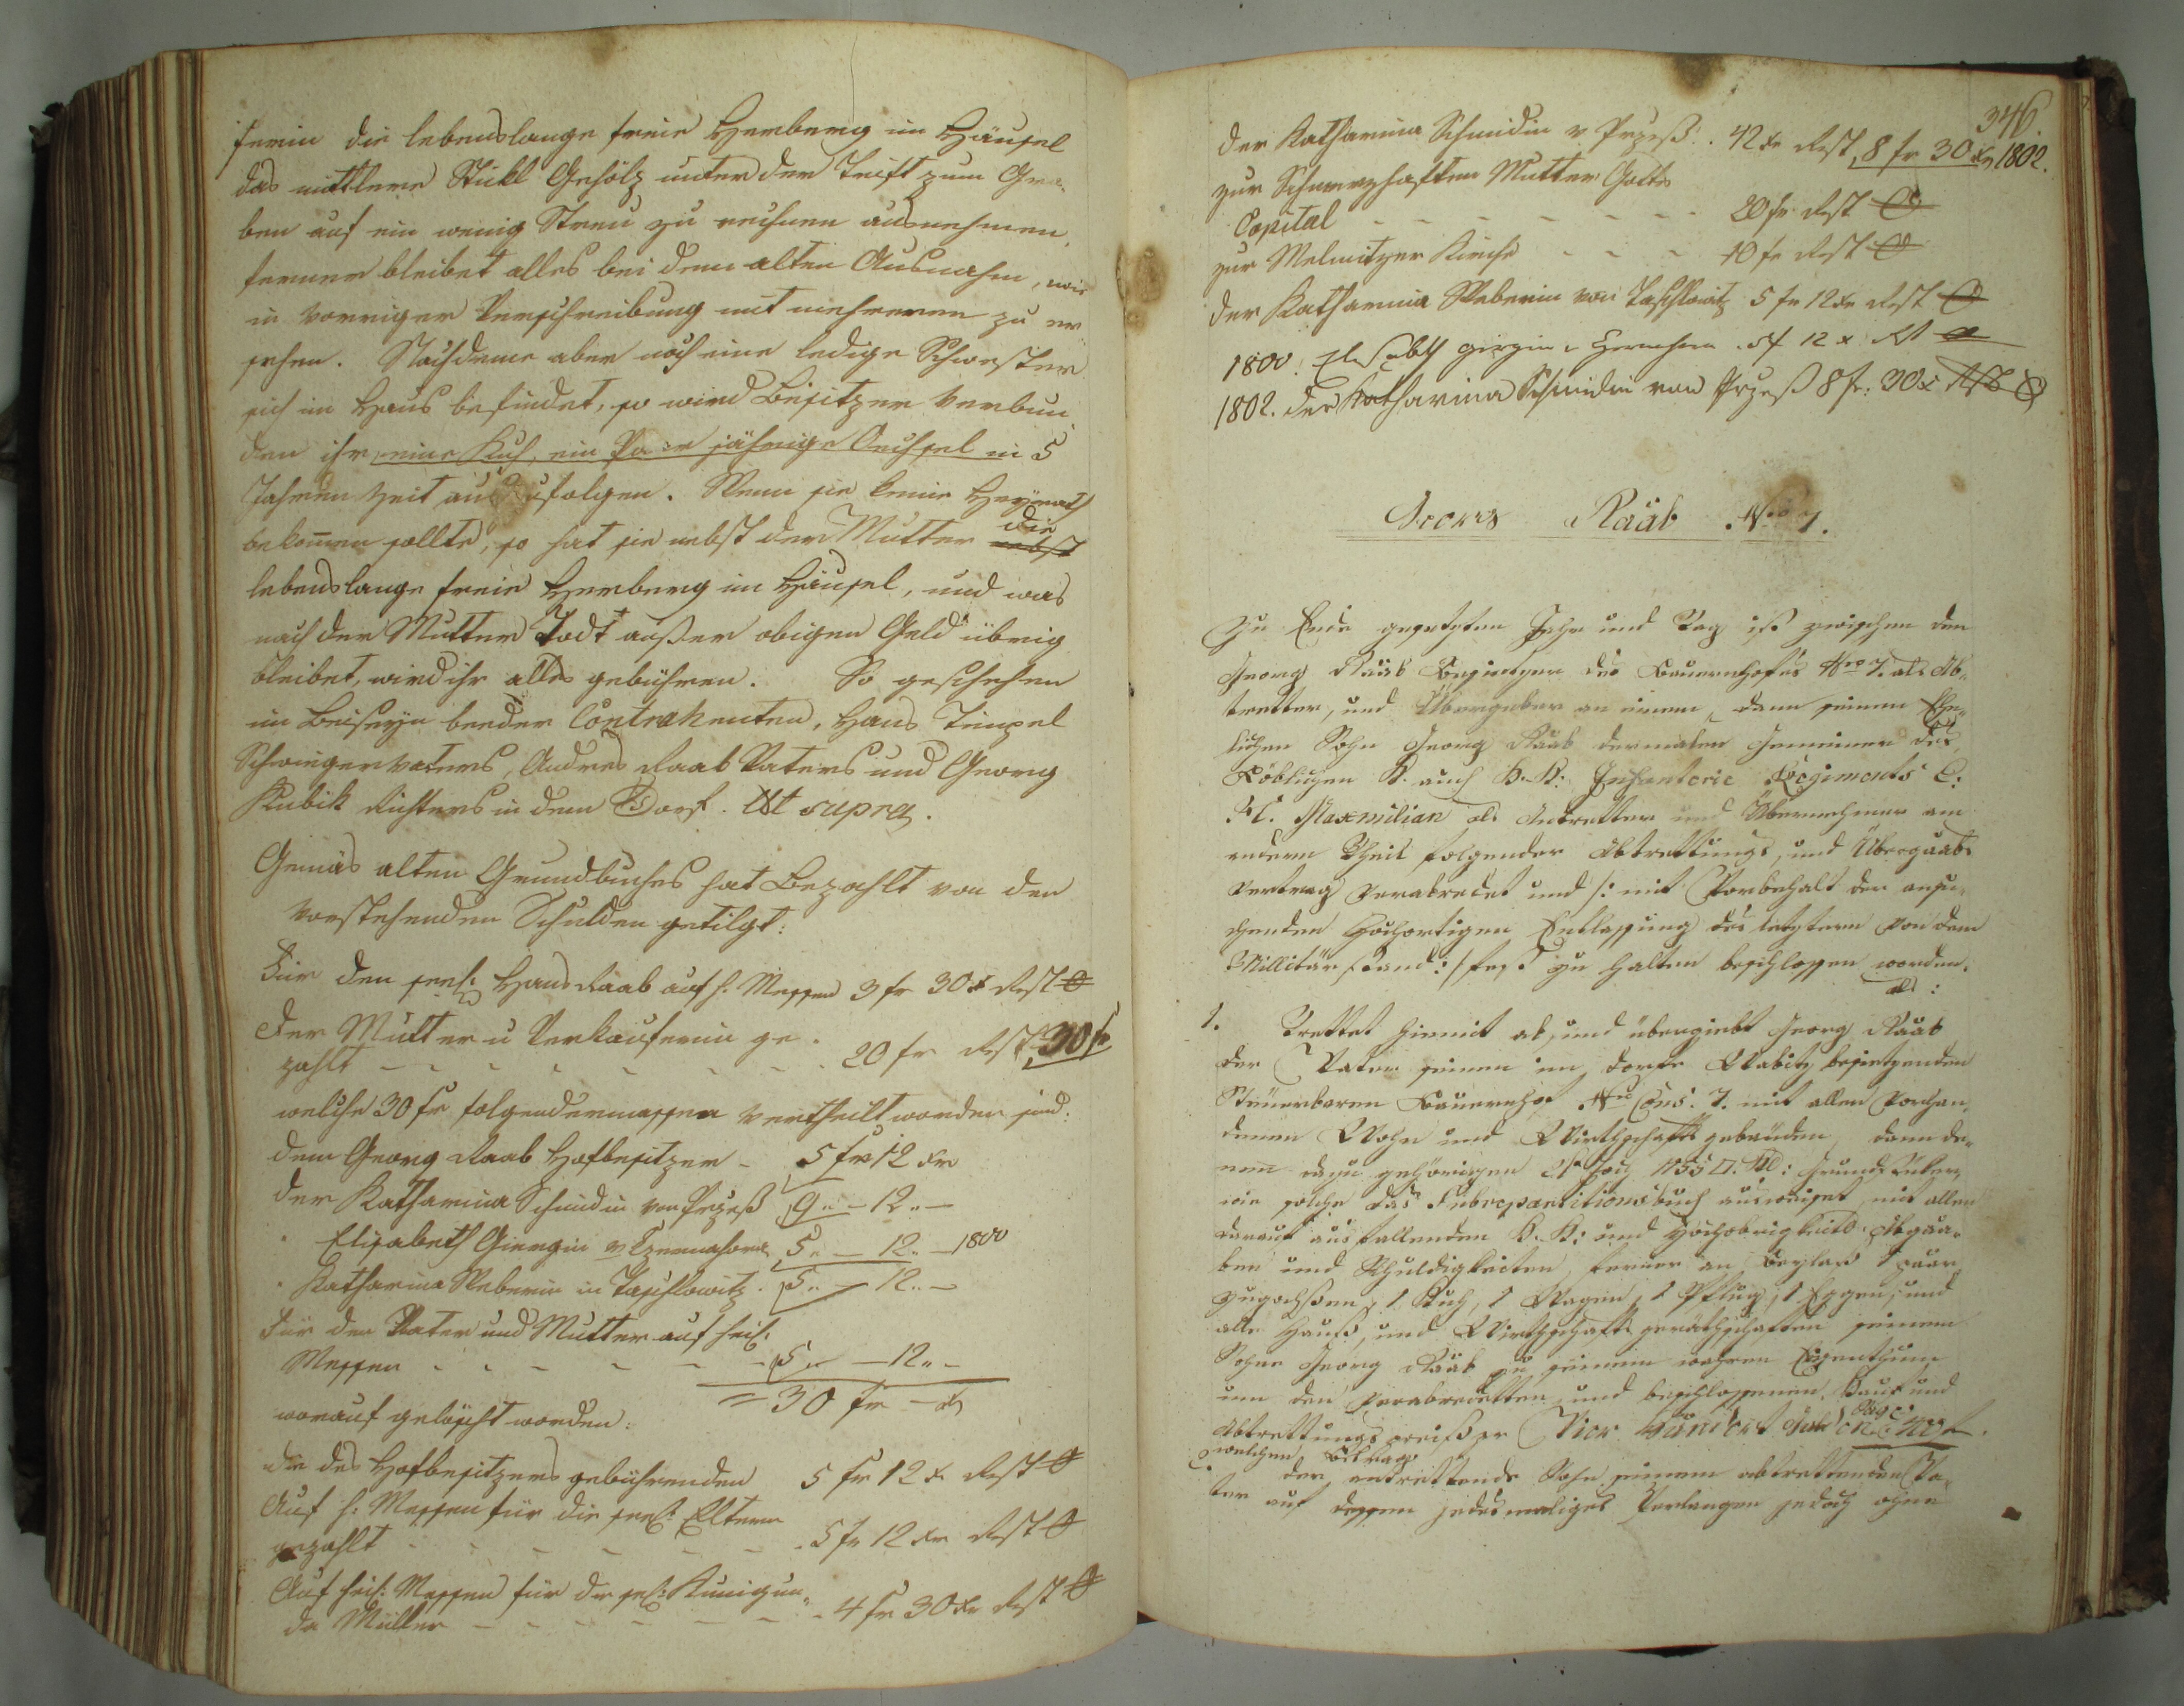 ferin die lebenslange freie Herberg im Häusel
das mittlere Stückl Gehölz unter der Trift zum Gra-
ben auf ein wenig Streu zu rechnen ausnehmen,
ferner bleibet alles bei dem alten Ausnahm, wie
in voriger Verschreibung mit mehreren zu er
sehen. Nachdeme aber noch eine ledige Schwester
sich im Haus befindet, so wird Besitzer verbun
den ihr eine Kuh, ein Paar jährige Oechsel in 5
Jahren Zeit auszufolgen. Wenn sie keine Heyrath
bekommen sollte, so hat sie nebst der Mutter die
lebenslange freie Herberg im Häusel, und was
nach der Mutter Todt außer obigen Geld übrig
bleibet, wird ihr alles gebühren. So geschehen
im Beiseyn beeder Contrahenten, Hans Timpel
Schwiegervaters, Andres Raab Vaters und Georg
Kubik Richters in dem Dorf. Ut supra.
Gemäs alten Grundbuches hat bezahlt von den
vorstehenden Schulden getilgt:
Für den seel: Hans Raab auf h. Messen 3 fr 30 x Rest 0
Der Mutter u Verkauferin ge-
zahlt - - - - - - 20 fr Rest 30 f
welche 30 fr folgendermassen vertheilt worden sind:
dem Georg Raab Hofbesitzer - 5 fr 12 xr
der Katharina Schmidin von Przeß 9 " - 12 " -
" Elisabeth Giergin v 5 " - 12 " - 1800
" Katharina Weberin in Taschlowitz 5 " - 12 " -
Für den Vater und Mutter auf heil:
Messen - - - - - 5 " - 12 " -
= 30 fr - x
worauf gelöscht worden:
die des Hofbesitzers gebührenden 5 fr 12 x Rest 0
Auf h: Messen für die seel: Eltern
gezahlt - - - - - 5 fr 12 xr Rest 0
Auf heil: Messen für die sel: Kunigun-
da Müller - - - - - 4 fr 30 xr Rest 0
346
der Katharina Schmidin v Przeß . 42 xr Rest, 8 fr 30 xr 1802.
zur Schmerzhaften Mutter Gottes
Capital - - - - - - 20 fr Rest 0
zur Melmitzer Kirche - - - 10 fr Rest 0
der Katharina Weberin von Taschlowitz 5 fr 12 xr Rest 0
1800. Elisabeth Girgin 5 f 12 x Rst 0
1802. der Katharina Schmidin von Przeß 8 fr: 30 x Rst 0
Georg Raab Nro 7.
Zu Ende gesetzten Jahr und Tag ist zwischen den
Georg Raab Besitzer des Bauernhofes Nro 7. als Ab-
tretter, und Übergeber an einem, dann seinem Ehe-
lichen Sohn Georg Raab dermalen Gemeiner des
Löblichen K. auch K. K: Infanterie Regiments E:
H. Maxmilian als Antretter und Übernehmer am
andern Theil folgender Abtrettungs, und Übergaabs
Vertrag verabredet und /: mit Vorbehalt der ansu-
chenden Hochortigen Entlassung des letztern von dem
Millitär stand :/ fest zu halten beschlossen worden.
als:
1. Trettet hiemit ab, und übergiebt Georg Raab
der Vater seinen im Dorfe Wabitz besitzenden
Steuerbaren Bauernhof Nro Cons. 7. mit allen vorhan-
denen Wohn und Wirthschafts gebäuden, dann de-
nen dazu gehörigen Joch 1155 □ Kl: Grundstücken,
wie solche das Subrepartitions buch ausweiset, mit allen
darauf ausfallenden K. K: und Hochobrigkeitl. Abgaa-
ben und Schuldigkeiten, ferner an Beylas 1 paar
Zugochsen, 1 Kuh, 1 Wagen, 1 Pflug, 1 Eggen, und
alle Hauß, und Wirthschafts geräthschaften seinem
Sohne Georg Raab zu seinem wahren Eigenthum
um den verabredetten und beschlossenen Kauf und
Abtrettungs preiß pr Vier Hundert Gulden 400 f.
welchen Betrag
2. der antrettende Sohn seinem abtrettenden Va-
ter auf dessen jedesmaliges Verlangen jedoch ohne